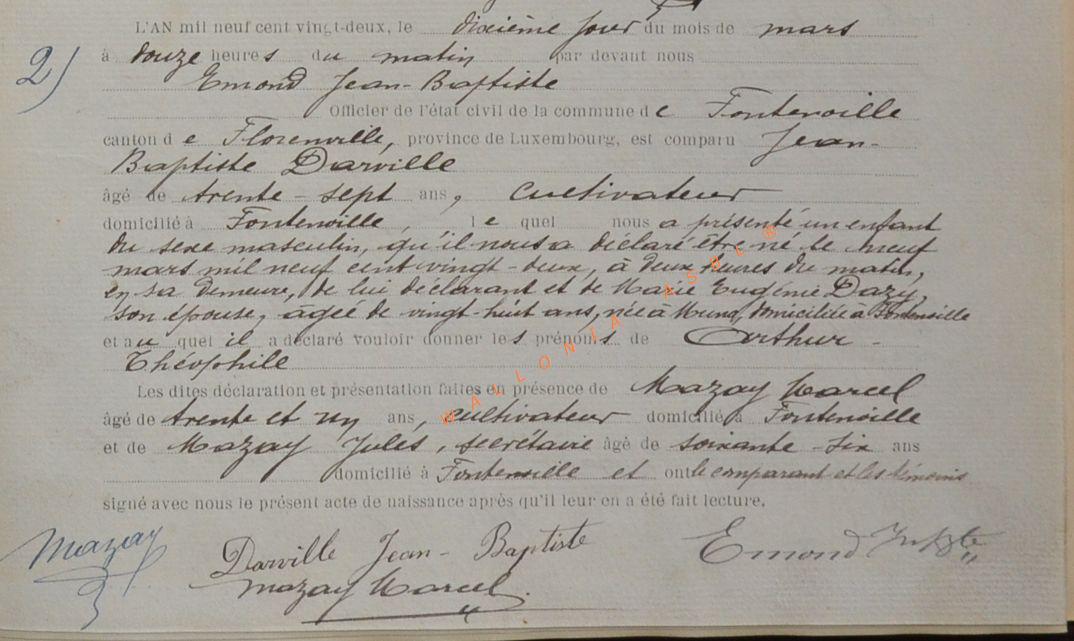 L'AN mil neuf cent vingt-deux, le dixième jour du mois de mars
2)
à douze heures du matin par devant nous
Emond Jean-Baptiste
Officier de l'état civil de la commune de Fontenoille
canton de Florenville, province de Luxembourg, est comparu Jean-
Baptiste Darville
âgé de trente-sept ans, cultivateur
domicilié à Fontenoille, lequel nous a présenté un enfant
du sexe masculin, qu'il nous a déclaré être né le neuf
mars mil neuf cent vingt-deux, à deux heures du matin,
en sa demeure, de lui déclarant et de Marie Eugénie Dazy,
son épouse, agée de vingt-huit ans, née à Muno, domiciliée à Fontenoille
et auquel il a déclaré vouloir donner les prénoms de Arthur-
Théophile
Les dites déclaration et présentation faites en présence de Mazay Marcel
âgé de trente et un ans, cultivateur domicilié à Fontenoille
et de Mazay Jules, secrétaire âgé de soixante-six ans
domicilié à Fontenoille et ont le comparant et les témoins
signé avec nous le présent acte de naissance après qu'il leur en a été fait lecture.
Mazay
Darville Jean-Baptiste
Emond
Mazay Marcel
WALLONIA ASBL ®